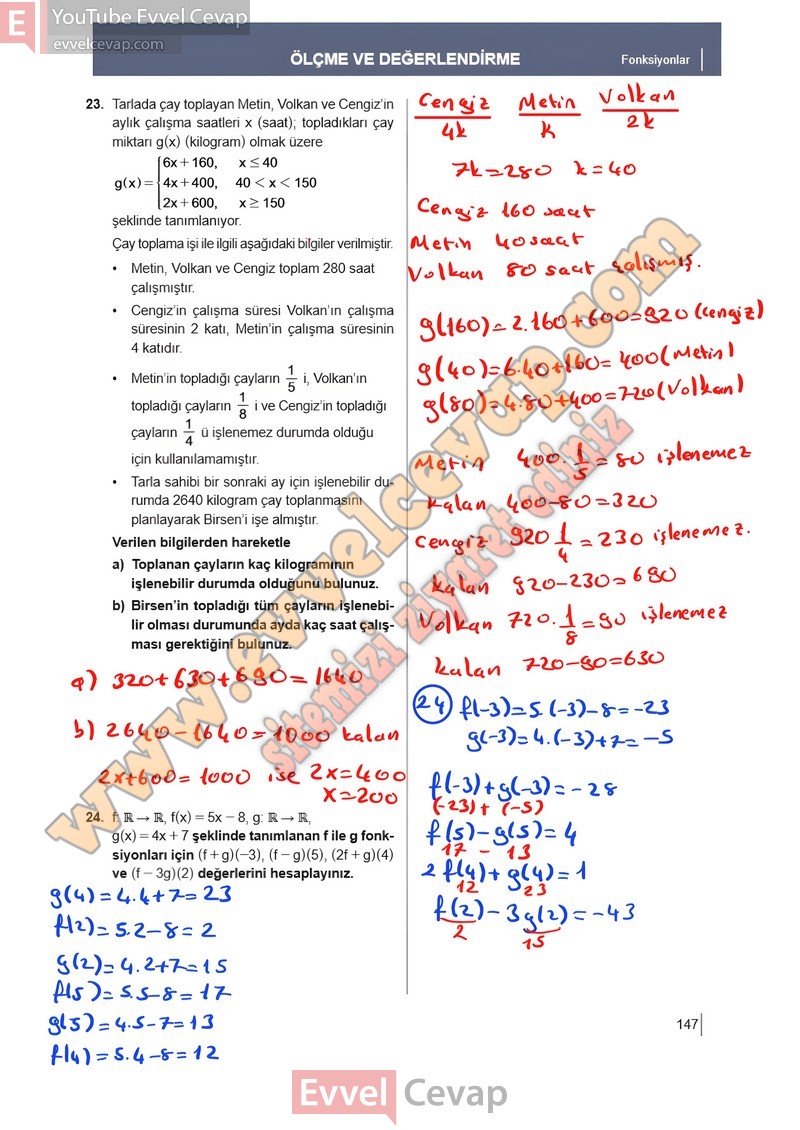 E YouTube Evvel Cevap
evvelcevap.com
ÖLÇME VE DEĞERLENDİRME
Fonksiyonlar
23. Tarlada çay toplayan Metin, Volkan ve Cengiz'in
aylık çalışma saatleri x (saat); topladıkları çay
miktarı g(x) (kilogram) olmak üzere
6x + 160, x ≤ 40
g(x) = 4x + 400, 40 < x < 150
2x + 600, x ≥ 150
şeklinde tanımlanıyor.
Çay toplama işi ile ilgili aşağıdaki bilgiler verilmiştir.
• Metin, Volkan ve Cengiz toplam 280 saat
çalışmıştır.
• Cengiz'in çalışma süresi Volkan'ın çalışma
süresinin 2 katı, Metin'in çalışma süresinin
4 katıdır.
• Metin'in topladığı çayların 1/5 i, Volkan'ın
topladığı çayların 1/8 i ve Cengiz'in topladığı
çayların 1/4 ü işlenemez durumda olduğu
için kullanılamamıştır.
• Tarla sahibi bir sonraki ay için işlenebilir du-
rumda 2640 kilogram çay toplanmasını
planlayarak Birsen'i işe almıştır.
Verilen bilgilerden hareketle
a) Toplanan çayların kaç kilogramının
işlenebilir durumda olduğunu bulunuz.
b) Birsen'in topladığı tüm çayların işlenebi-
lir olması durumunda ayda kaç saat çalış-
ması gerektiğini bulunuz.
a) 320+630+690=1640
b) 2640-1640=1000 kalan
2x+600=1000 ise 2x=400
x=200
24. f: ℝ → ℝ, f(x) = 5x − 8, g: ℝ → ℝ,
g(x) = 4x + 7 şeklinde tanımlanan f ile g fonk-
siyonları için (f + g)(−3), (f − g)(5), (2f + g)(4)
ve (f − 3g)(2) değerlerini hesaplayınız.
g(4)=4.4+7=23
f(2)=5.2-8=2
g(2)=4.2+7=15
f(5)=5.5-8=17
g(5)=4.5-7=13
f(4)=5.4-8=12
Cengiz Metin Volkan
4k k 2k
7k=280 k=40
Cengiz 160 saat
Metin 40 saat
Volkan 80 saat çalışmış.
g(160)=2.160+600=920 (Cengiz)
g(40)=6.40+160=400 (Metin)
g(80)=4.80+400=720 (Volkan)
Metin 400.1/5=80 işlenemez
kalan 400-80=320
Cengiz 920 1/4=230 işlenemez.
kalan 920-230=690
Volkan 720.1/8=90 işlenemez
kalan 720-90=630
24 f(-3)=5.(-3)-8=-23
g(-3)=4.(-3)+7=-5
f(-3)+g(-3)=-28
(-23)+(-5)
f(5)-g(5)=4
17 - 13
2 f(4)+g(4)=1
12 23
f(2)-3g(2)=-43
2 15
www.evvelcevap.com
sitemizi ziyaret ediniz
147
Evvel Cevap